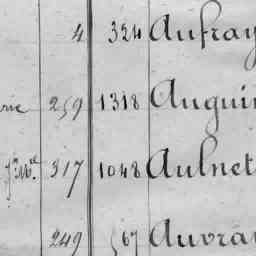 4 324 Aufray
rie 259 1318 Auguin
Jn. Me. 317 1048 Aulnet
249 567 Auvra